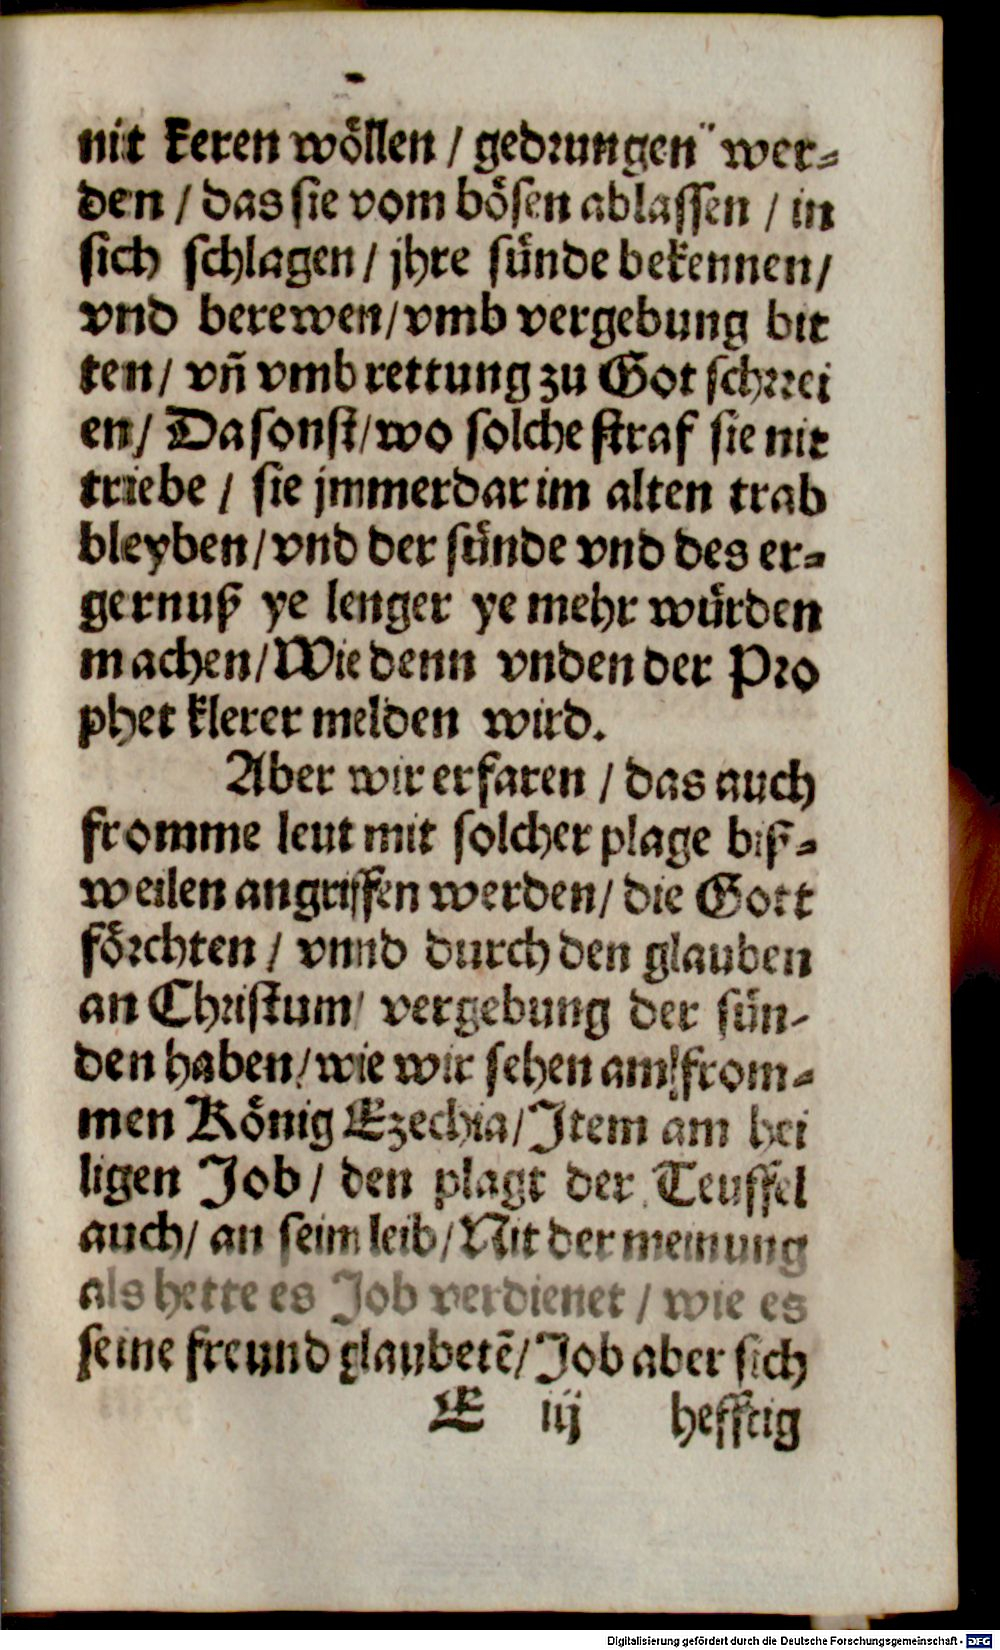 nit keren wöllen / gedrungen wer-
den / das sie vom bösen ablassen / in
sich schlagen / jhre sünde bekennen /
vnd berewen / vmb vergebung bit
ten / vñ vmb rettung zu Got schrei
en / Da sonst / wo solche straf sie nit
triebe / sie jmmerdar im alten trab
bleyben / vnd der sünde vnd des er-
gernuß ye lenger ye mehr würden
machen / Wie denn vnden der Pro
phet klerer melden wird.
Aber wir erfaren / das auch
fromme leut mit solcher plage biß-
weilen angriffen werden / die Gott
förchten / vnnd durch den glauben
an Christum / vergebung der sün-
den haben / wie wir sehen am from-
men König Ezechia / Item am hei
ligen Job / den plagt der Teuffel
auch / an seim leib / Nit der meinung
als hette es Job verdienet / wie es
seine freund glaubetē / Job aber sich
E iij hefftig
Digitalisierung gefördert durch die Deutsche Forschungsgemeinschaft - DFG